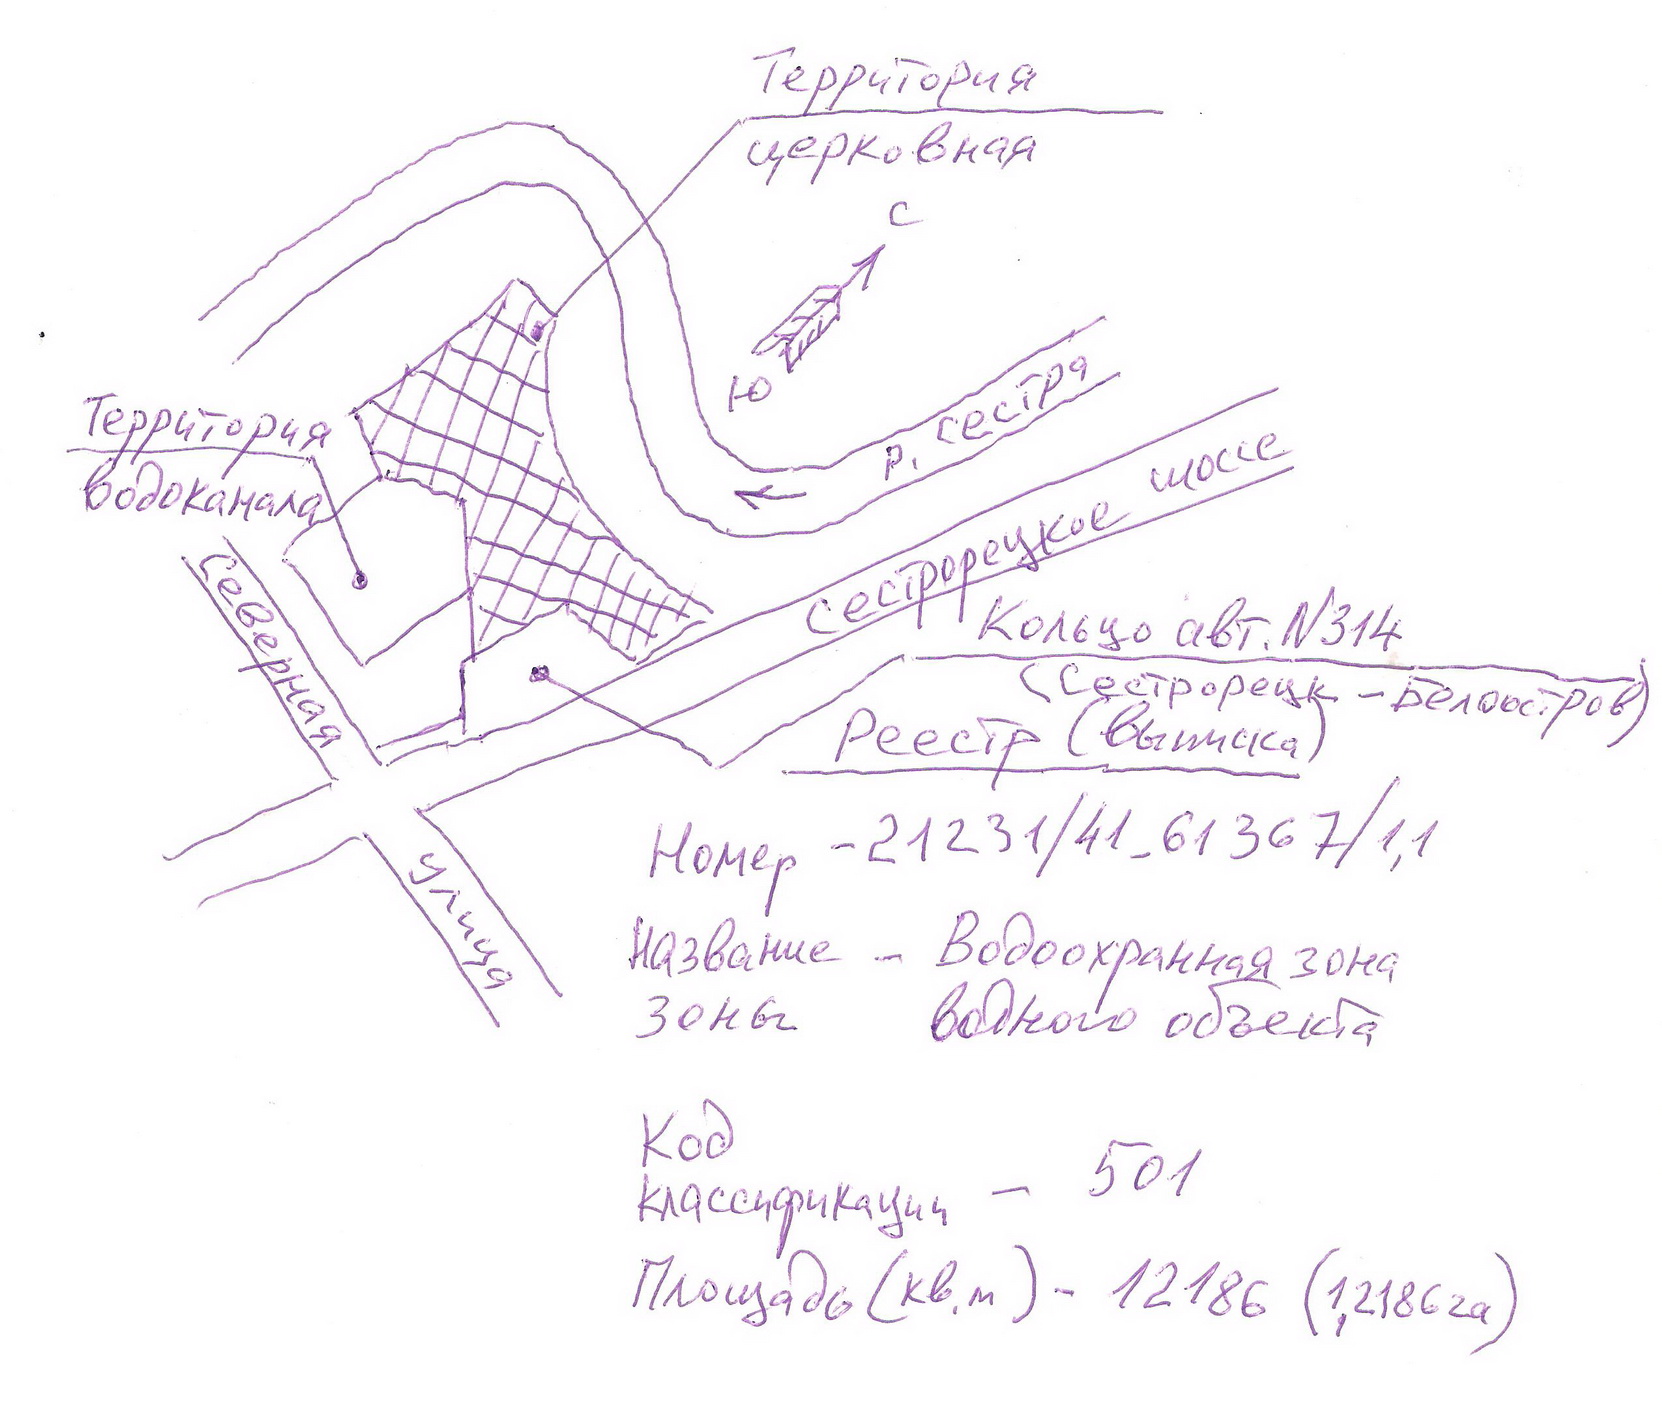 Территория
церковная
С
Ю
р. Сестра
Сестрорецкое шоссе
Территория
водоканала
Северная
улица
Кольцо авт. N314
(Сестрорецк - Белоостров)
Реестр (выписка)
Номер - 21231/41_61367/1,1
Название - Водоохранная зона
зоны водного объекта
Код
классификации - 501
Площадь (кв.м) - 12186 (1,2186 га)